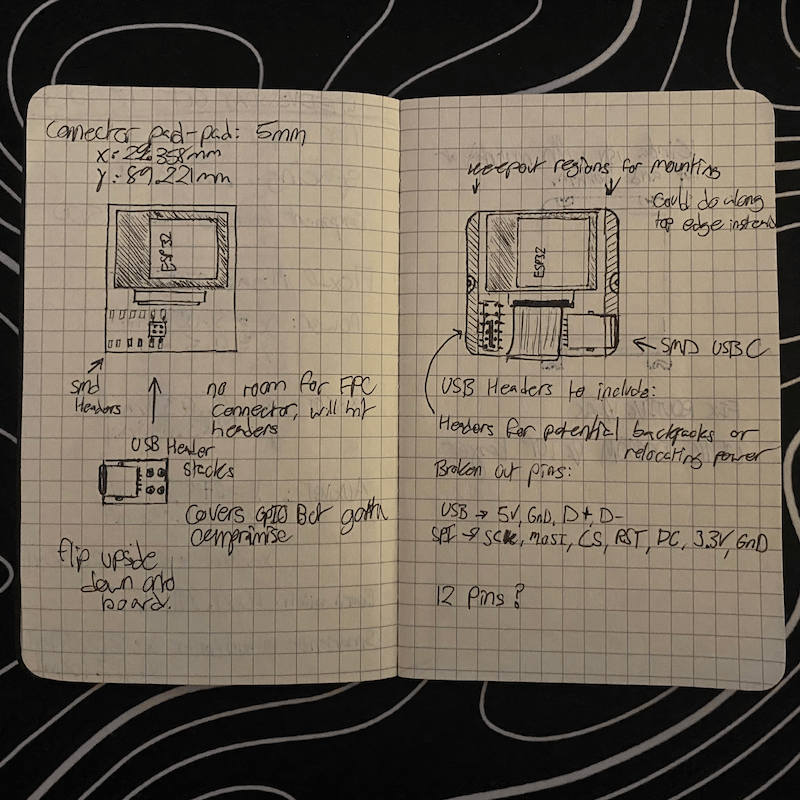 Connector pad-pad: 5mm
x: 29.358mm
y: 89.221mm
ESP32
SMD
Headers
no room for FPC
connector, will hit
headers
USB Header
stacks
Covers GPIO But gotta
compromise
flip upside
down onto
board.
keepout regions for mounting
could do along
top edge instead
ESP32
SMD USB C
USB Headers to include:
Headers for potential backpacks or
relocating power
Broken out pins:
USB → 5V, GND, D+, D-
SPI → SCK, MOSI, CS, RST, DC, 3.3V, GND
12 Pins?